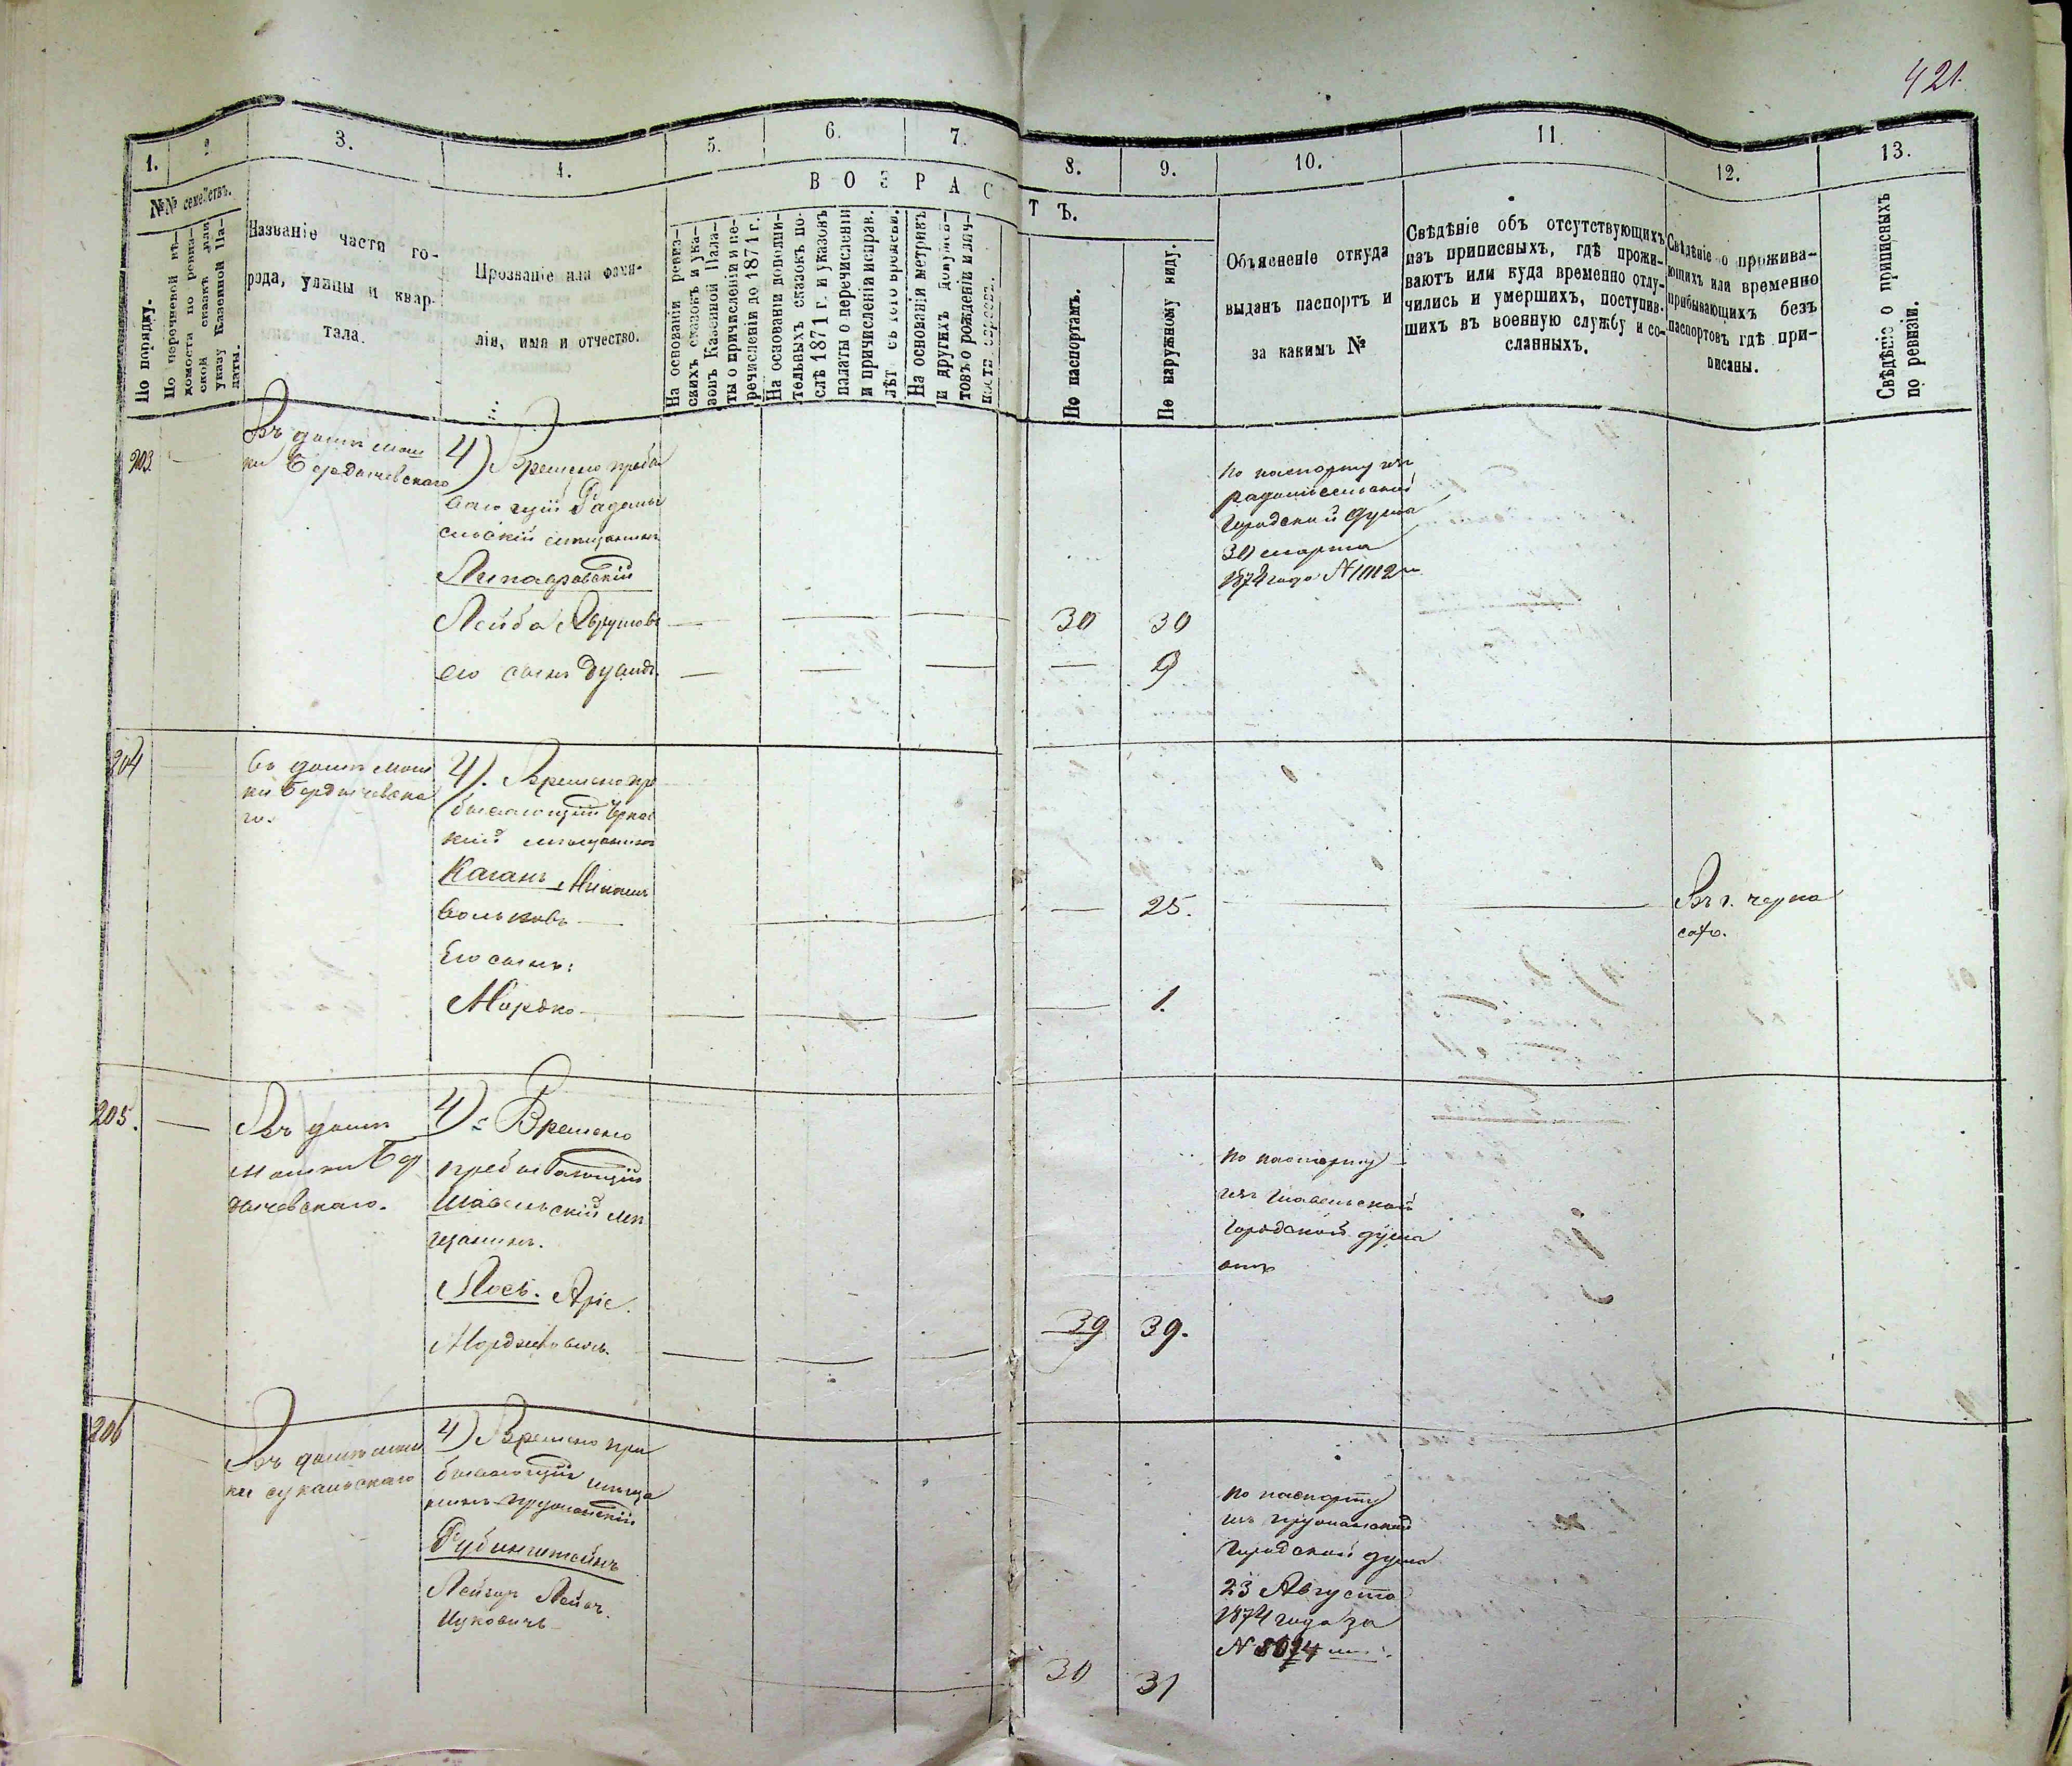 421.
1.
2
3.
4.
5.
6.
7.
8.
9.
10.
11.
12.
13.
№№ семействъ.
По порядку.
По перечневой вѣ-
домости по ревиз-
ской сказкѣ или
указу Казенной Па-
латы.
Названіе части го-
рода, улицы и квар-
тала.
Прозваніе или фами-
лія, имя и отчество.
ВОЗРАС
ТЪ.
На основаніи ревиз-
скихъ сказокъ и ука-
зовъ Казенной Пала-
ты о причисленіи и пе-
речисленіи до 1871 г.
На основаніи дополни-
тельныхъ сказокъ по-
слѣ 1871 г. и указовъ
палаты о перечисленіи
и причисленіи исправ.
лѣт съ того времени.
На основаніи метрикъ
и другихъ докумен-
товъ о рожденіи и лич-
ности евреевъ.
По паспортамъ.
По наружному виду.
Объясненіе откуда
выданъ паспортъ и
за какимъ №
Свѣдѣніе объ отсутствующихъ
изъ приписныхъ, гдѣ прожи-
ваютъ или куда временно отлу-
чились и умершихъ, поступив-
шихъ въ военную службу и со-
сланныхъ.
Свѣдѣніе о прожива-
ющихъ или временно
прибывающихъ безъ
паспортовъ гдѣ при-
писаны.
Свѣдѣніе о приписныхъ
по ревизіи.
203
Въ домѣ мош
ки Бердичевскаго
4) Временно пребы
вающій Радомы
сльскій мѣщанинъ
Лейба Аврумовъ
его сынъ Дувидъ
30
30
9
По паспорту изъ
Радомысльской
Городской Думы
30 марта
1874 года №
204
въ домѣ мош
ки Бердичевска
го.
4). Временно пре
бывающій Черкас
кій мѣщанинъ
Каганъ
Вольковъ
Его сынъ:
Мордко
25.
1.
Въ г. Черка
сахъ.
205.
Въ домѣ
Мошки Бер
дичевскаго.
4) Временно
пребывающій
Шавельскій мѣ
щанинъ.
Лосъ. Аріе
Мордховичъ.
39
39.
По паспорту
изъ Шавельской
Городской думы
отъ
206
Въ домѣ мош
ки
4) Временно при
бывающій мѣща
нинъ
Рубинштейнъ
Лейзор
Ицковичъ
30
31
По паспорту
изъ
Городской думы
23 Августа
1874 года за
№